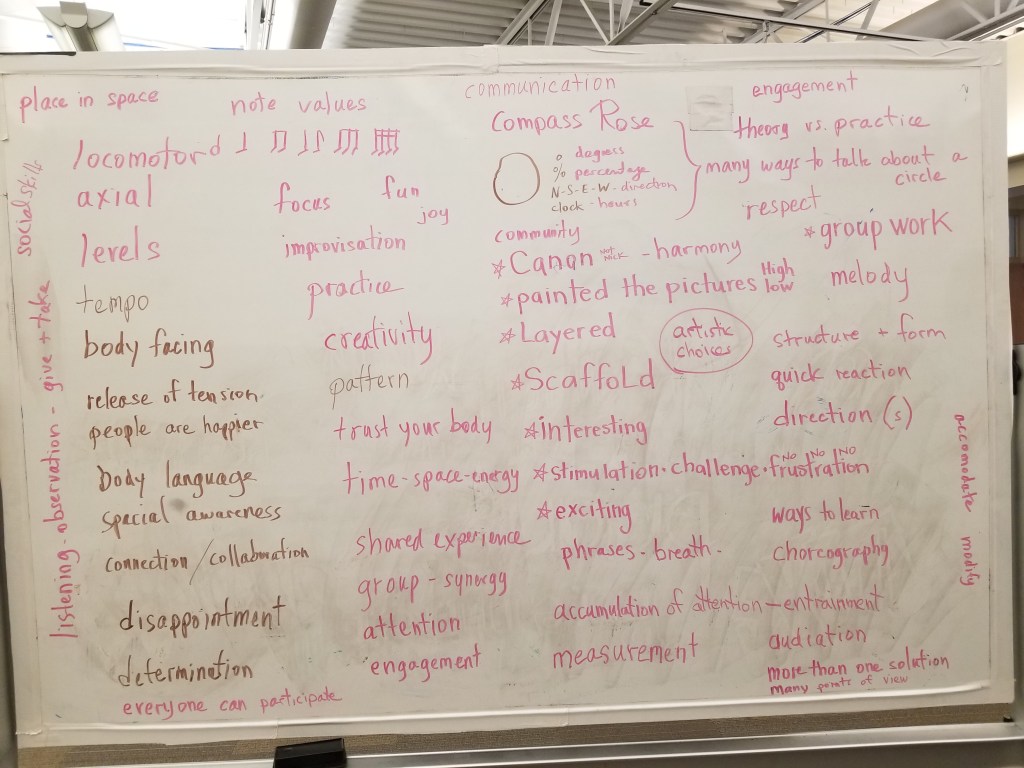 place in space
locomotord
axial
levels
tempo
body facing
release of tension.
people are happier
body language
spacial awareness
connection / collaboration
disappointment
determination
everyone can participate
social skills
listening - observation - give + take
note values
focus
fun
joy
improvisation
practice
creativity
pattern
trust your body
time - space - energy
shared experience
group - synergy
attention
engagement
communication
Compass Rose
° degress
% percentage
N-S-E-W - direction
clock - hours
community
☆Canon not Nick - harmony
☆painted the pictures High low
☆Layered
artistic choices
☆Scaffold
☆interesting
☆stimulation · challenge · frustration NO NO NO
☆exciting
phrases · breath ·
accumulation of attention - entrainment
measurement
engagement
theory vs. practice
many ways to talk about a circle
respect
☆group work
melody
structure + form
quick reaction
direction (s)
ways to learn
choreography
audiation
more than one solution
many points of view
accomodate modify